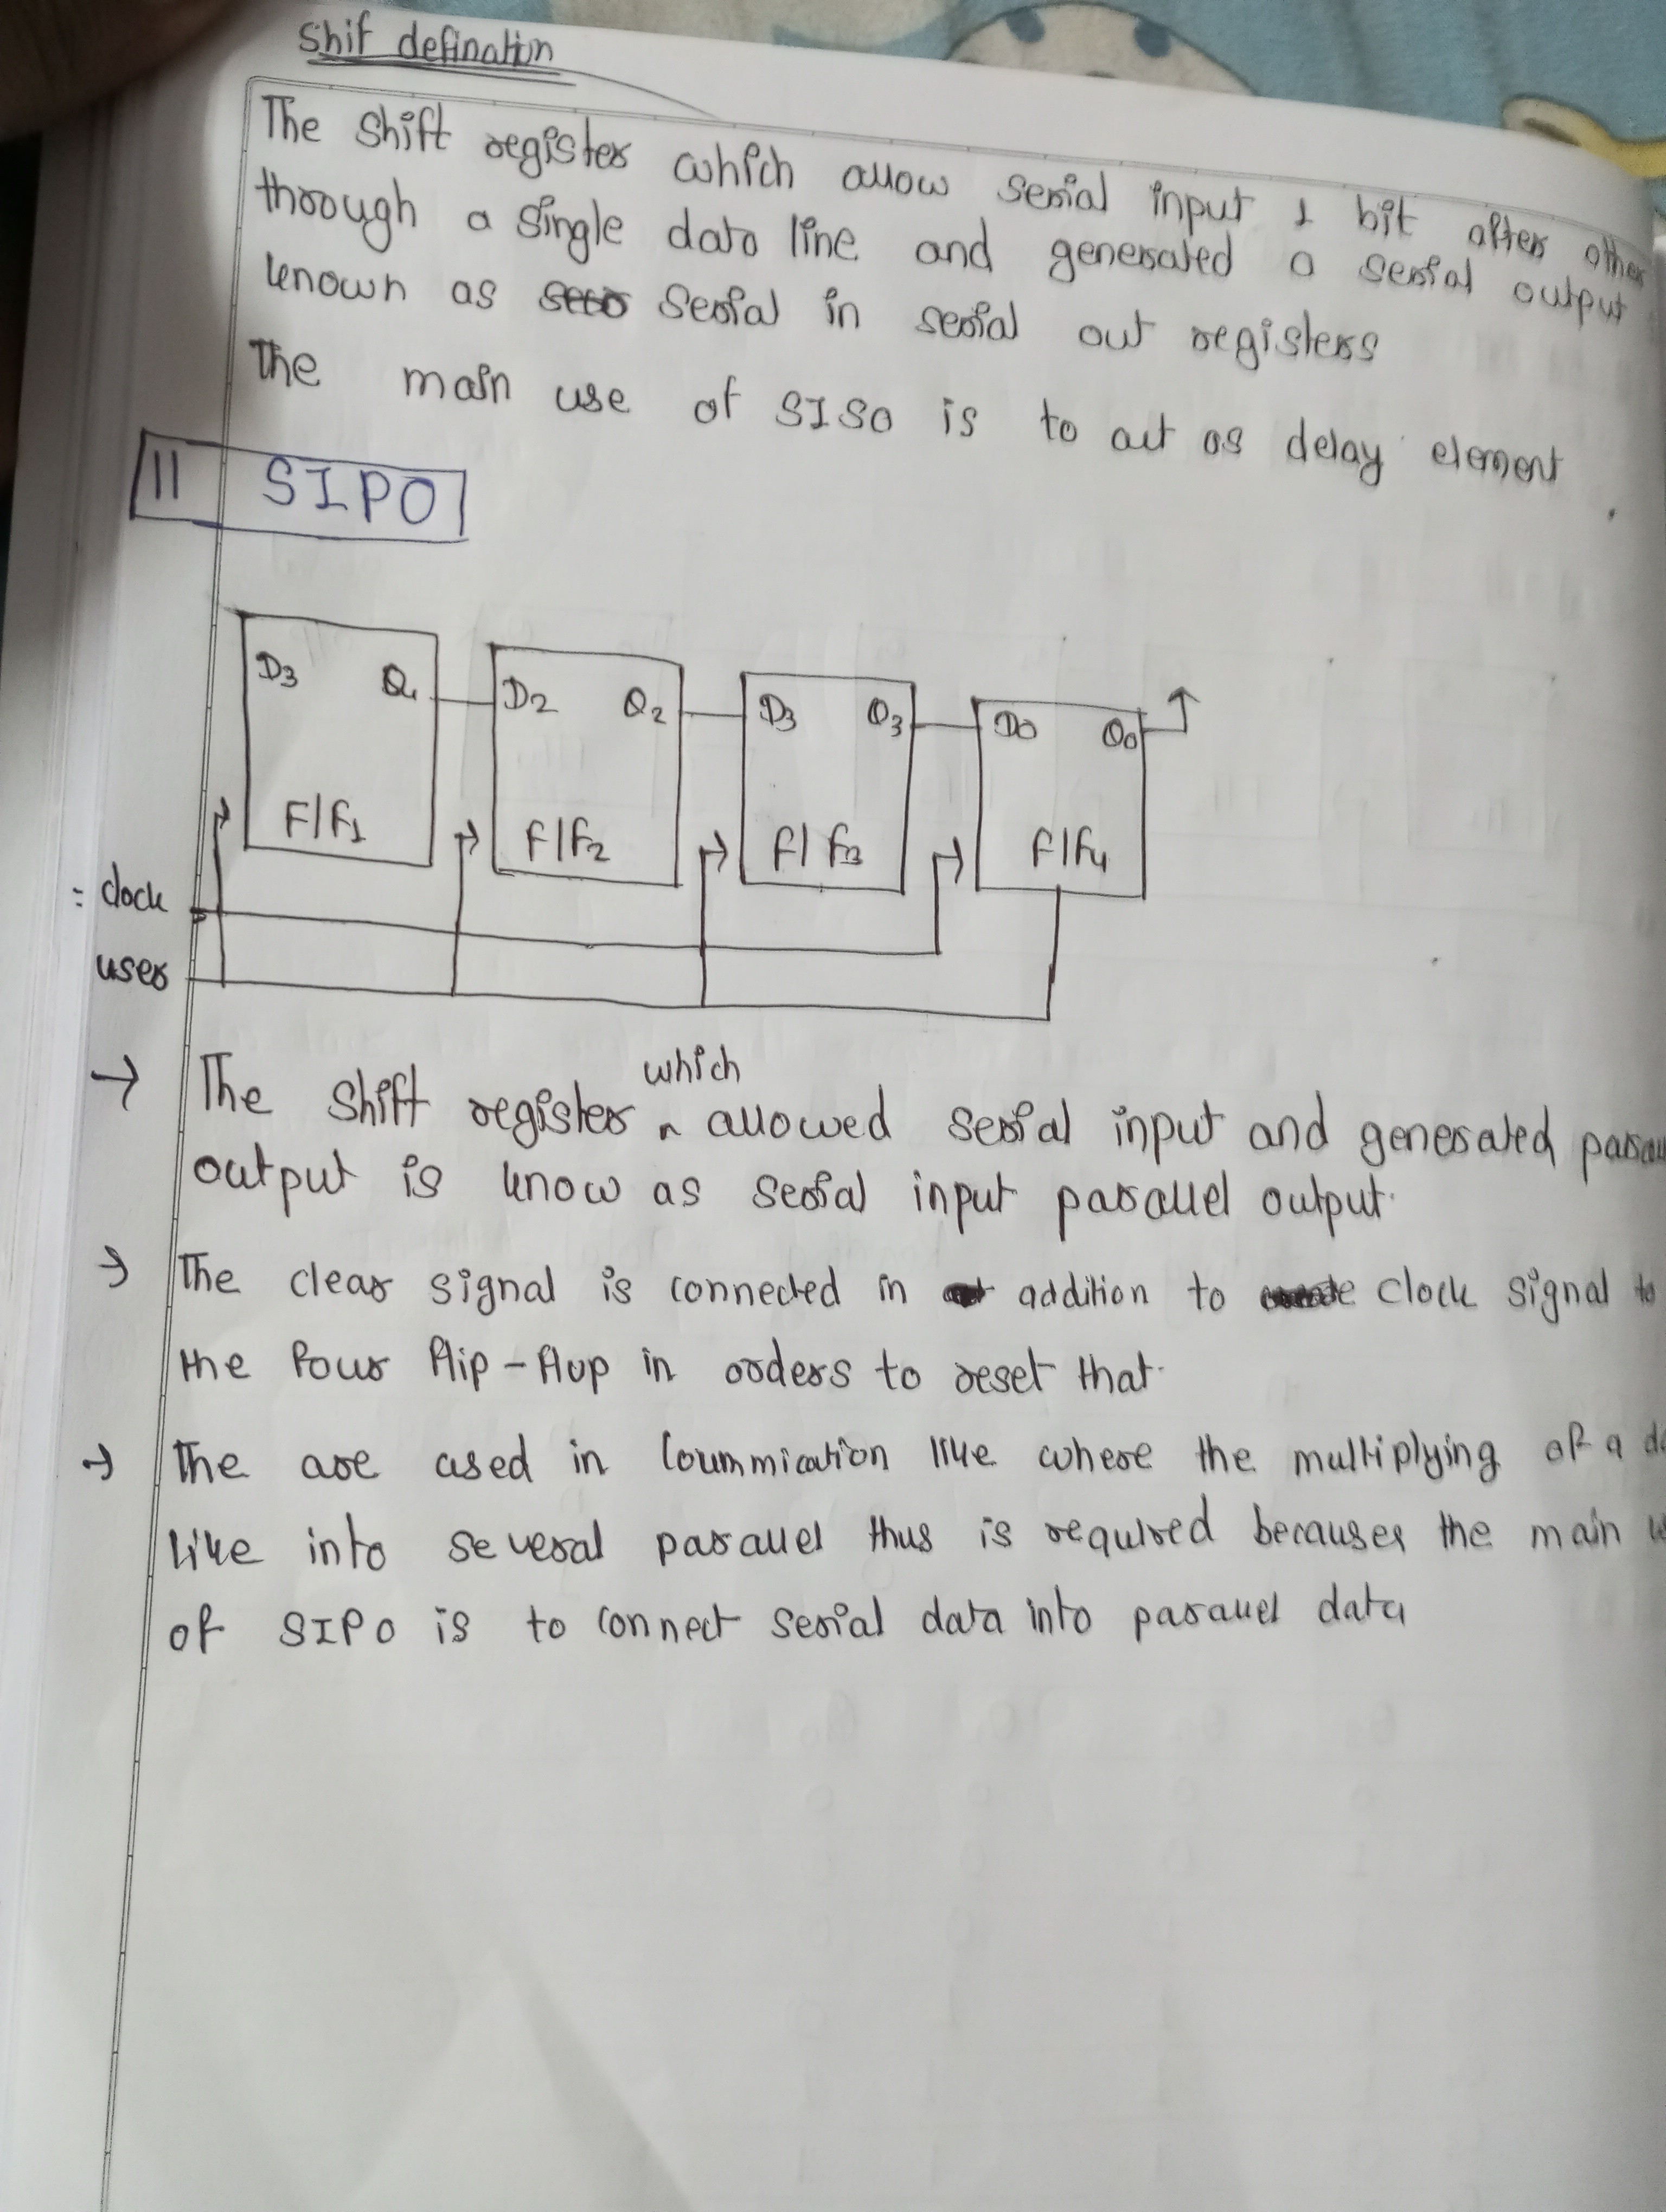 Shif defination
The Shift register which allow serial input 1 bit after other
through a single data line and generated a serial output
known as serial in serial out registers
The main use of SISO is to act as delay element
II SIPO
D3 Q1 D2 Q2 D3 Q3 D0 Q0
F/F1 F/F2 F/F3 F/F4
: clock
user
→ The Shift register which allowed serial input and generated
output is know as serial input parallel output.
→ The clear signal is connected in addition to clock signal to
the four flip-flup in orders to reset that.
→ The are used in Coummication like where the multiplying of a
like into several parallel thus is required becauses the main
of SIPO is to connect serial data into parallel data